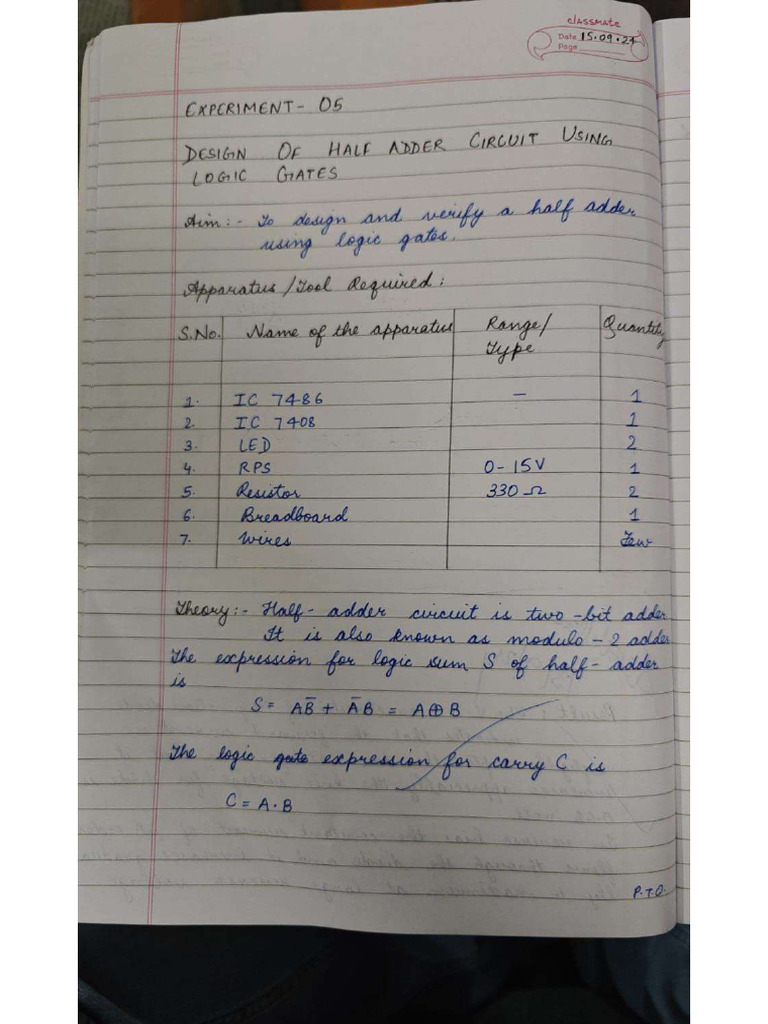 classmate
Date 15.09.24
Page
EXPERIMENT - 05
DESIGN OF HALF ADDER CIRCUIT USING
LOGIC GATES
Aim:- To design and verify a half adder
using logic gates.
Apparatus/Tool Required:
S.No. Name of the apparatus Range/ Quantity
Type
1. IC 7486 - 1
2. IC 7408 1
3. LED 2
4. RPS 0-15V 1
5. Resistor 330 Ω 2
6. Breadboard 1
7. Wires Few
Theory:- Half-adder circuit is two-bit adder
It is also known as modulo-2 adder
The expression for logic sum S of half-adder
is
S = AB̅ + A̅B = A⊕B
The logic gate expression for carry C is
C = A·B
P.T.O.